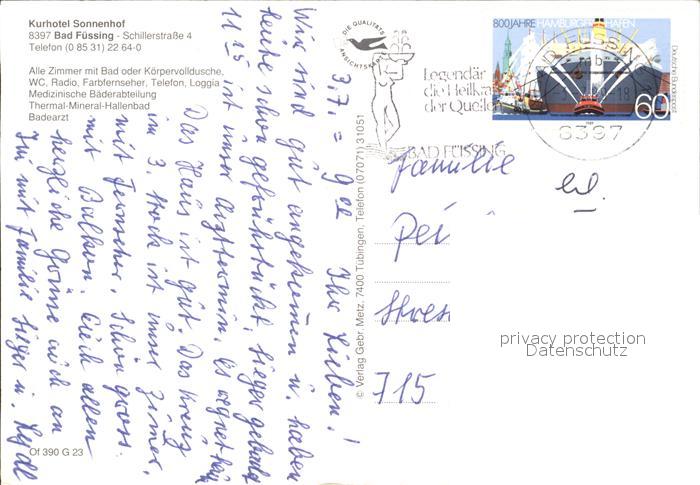 Kurhotel Sonnenhof
8397 Bad Füssing - Schillerstraße 4
Telefon (0 85 31) 22 64-0
Alle Zimmer mit Bad oder Körpervolldusche,
WC, Radio, Farbfernseher, Telefon, Loggia
Medizinische Bäderabteilung
Thermal-Mineral-Hallenbad
Badearzt
3.7. = 9 Ihr Lieben!
Wir sind gut angekommen u. haben
heute schon gefrühstückt,
11.15 ist unser Arzttermin. Es regnet
Das Haus ist gut. Das Kreuz
im 3. Stock ist unser Zimmer,
mit Fernseher. Schön gross.
mit Balkon. Euch allen
herzliche Grüsse auch an
mit Familie
Of 390 G 23
© Verlag Gebr. Metz, 7400 Tübingen, Telefon (07071) 31051
DIE QUALITÄTS
ANSICHTSKARTE
Legendär
die Heilkraft
der Quellen
BAD FÜSSING
800 JAHRE HAMBURGER HAFEN
Deutsche Bundespost
60
BAD FÜSSING
mb
8397
Familie
715
privacy protection
Datenschutz